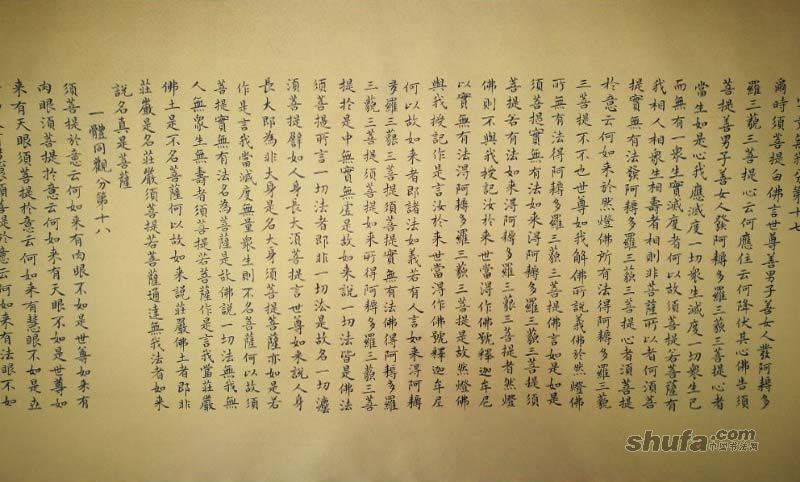 無我分第十七
爾時須菩提白佛言世尊善男子善女人發阿耨多
羅三藐三菩提心云何應住云何降伏其心佛告須
菩提善男子善女人發阿耨多羅三藐三菩提心者
當生如是心我應滅度一切眾生滅度一切眾生已
而無有一眾生實滅度者何以故須菩提若菩薩有
我相人相眾生相壽者相則非菩薩所以者何須菩
提實無有法發阿耨多羅三藐三菩提心者須菩提
於意云何如來於然燈佛所有法得阿耨多羅三藐
三菩提不不也世尊如我解佛所說義佛於然燈佛
所無有法得阿耨多羅三藐三菩提佛言如是如是
須菩提實無有法如來得阿耨多羅三藐三菩提須
菩提若有法如來得阿耨多羅三藐三菩提者然燈
佛則不與我授記汝於來世當得作佛號釋迦牟尼
以實無有法得阿耨多羅三藐三菩提是故然燈佛
與我授記作是言汝於來世當得作佛號釋迦牟尼
何以故如來者即諸法如義若有人言如來得阿耨
多羅三藐三菩提須菩提實無有法佛得阿耨多羅
三藐三菩提須菩提如來所得阿耨多羅三藐三菩
提於是中無實無虛是故如來說一切法皆是佛法
須菩提所言一切法者即非一切法是故名一切灋
須菩提譬如人身長大須菩提言世尊如來說人身
長大即為非大身是名大身須菩提菩薩亦如是若
作是言我當滅度無量眾生則不名菩薩何以故須
菩提實無有法名為菩薩是故佛說一切法無我無
人無眾生無壽者須菩提若菩薩作是言我當莊嚴
佛土是不名菩薩何以故如來說莊嚴佛土者即非
莊嚴是名莊嚴須菩提若菩薩通達無我法者如來
說名真是菩薩
一體同觀分第十八
須菩提於意云何如來有肉眼不如是世尊如來有
肉眼須菩提於意云何如來有天眼不如是世尊如
來有天眼須菩提於意云何如來有慧眼不如是世
須菩提於意云何如來有法眼不如
shufa.com
中国书法网